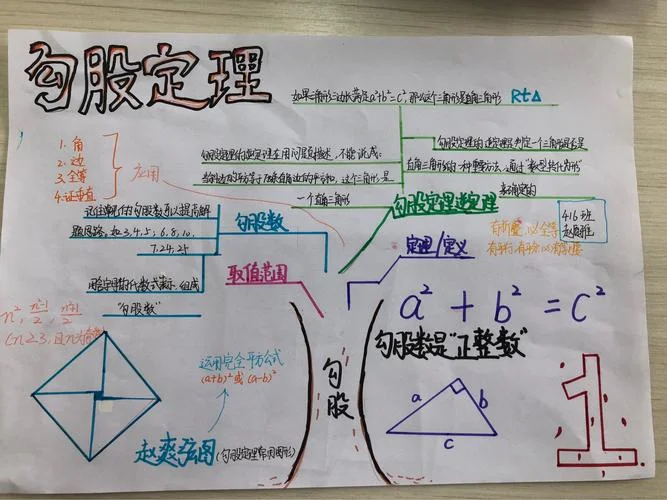 勾股定理
如果三角形三边长满足a²+b²=c²,那么这个三角形是直角三角形 Rt△
1.角
2.边
3.全等
4.证垂直
应用
勾股定理的逆定理在用问题描述,不能说成:
当斜边的平方等于两条直角边的平方和,这个三角形是
一个直角三角形
勾股定理的逆定理是判定一个三角形是否是
直角三角形的一种重要方法,通过“数型转化为形”
勾股定理逆定理
416班
记住常见的勾股数可以提高解
题思路,如3,4,5;6,8,10;
7,24,25
勾股数
用含字母的代数式表示n组成
“勾股数”
取值范围
定理/定义
a²+b²=c²
勾股数是“正整数”
n²,
(n≥3,且n为奇数)
运用完全平方公式
(a+b)²或(a-b)²
赵爽弦图(勾股定理常用图形)
勾股
a
b
c
1